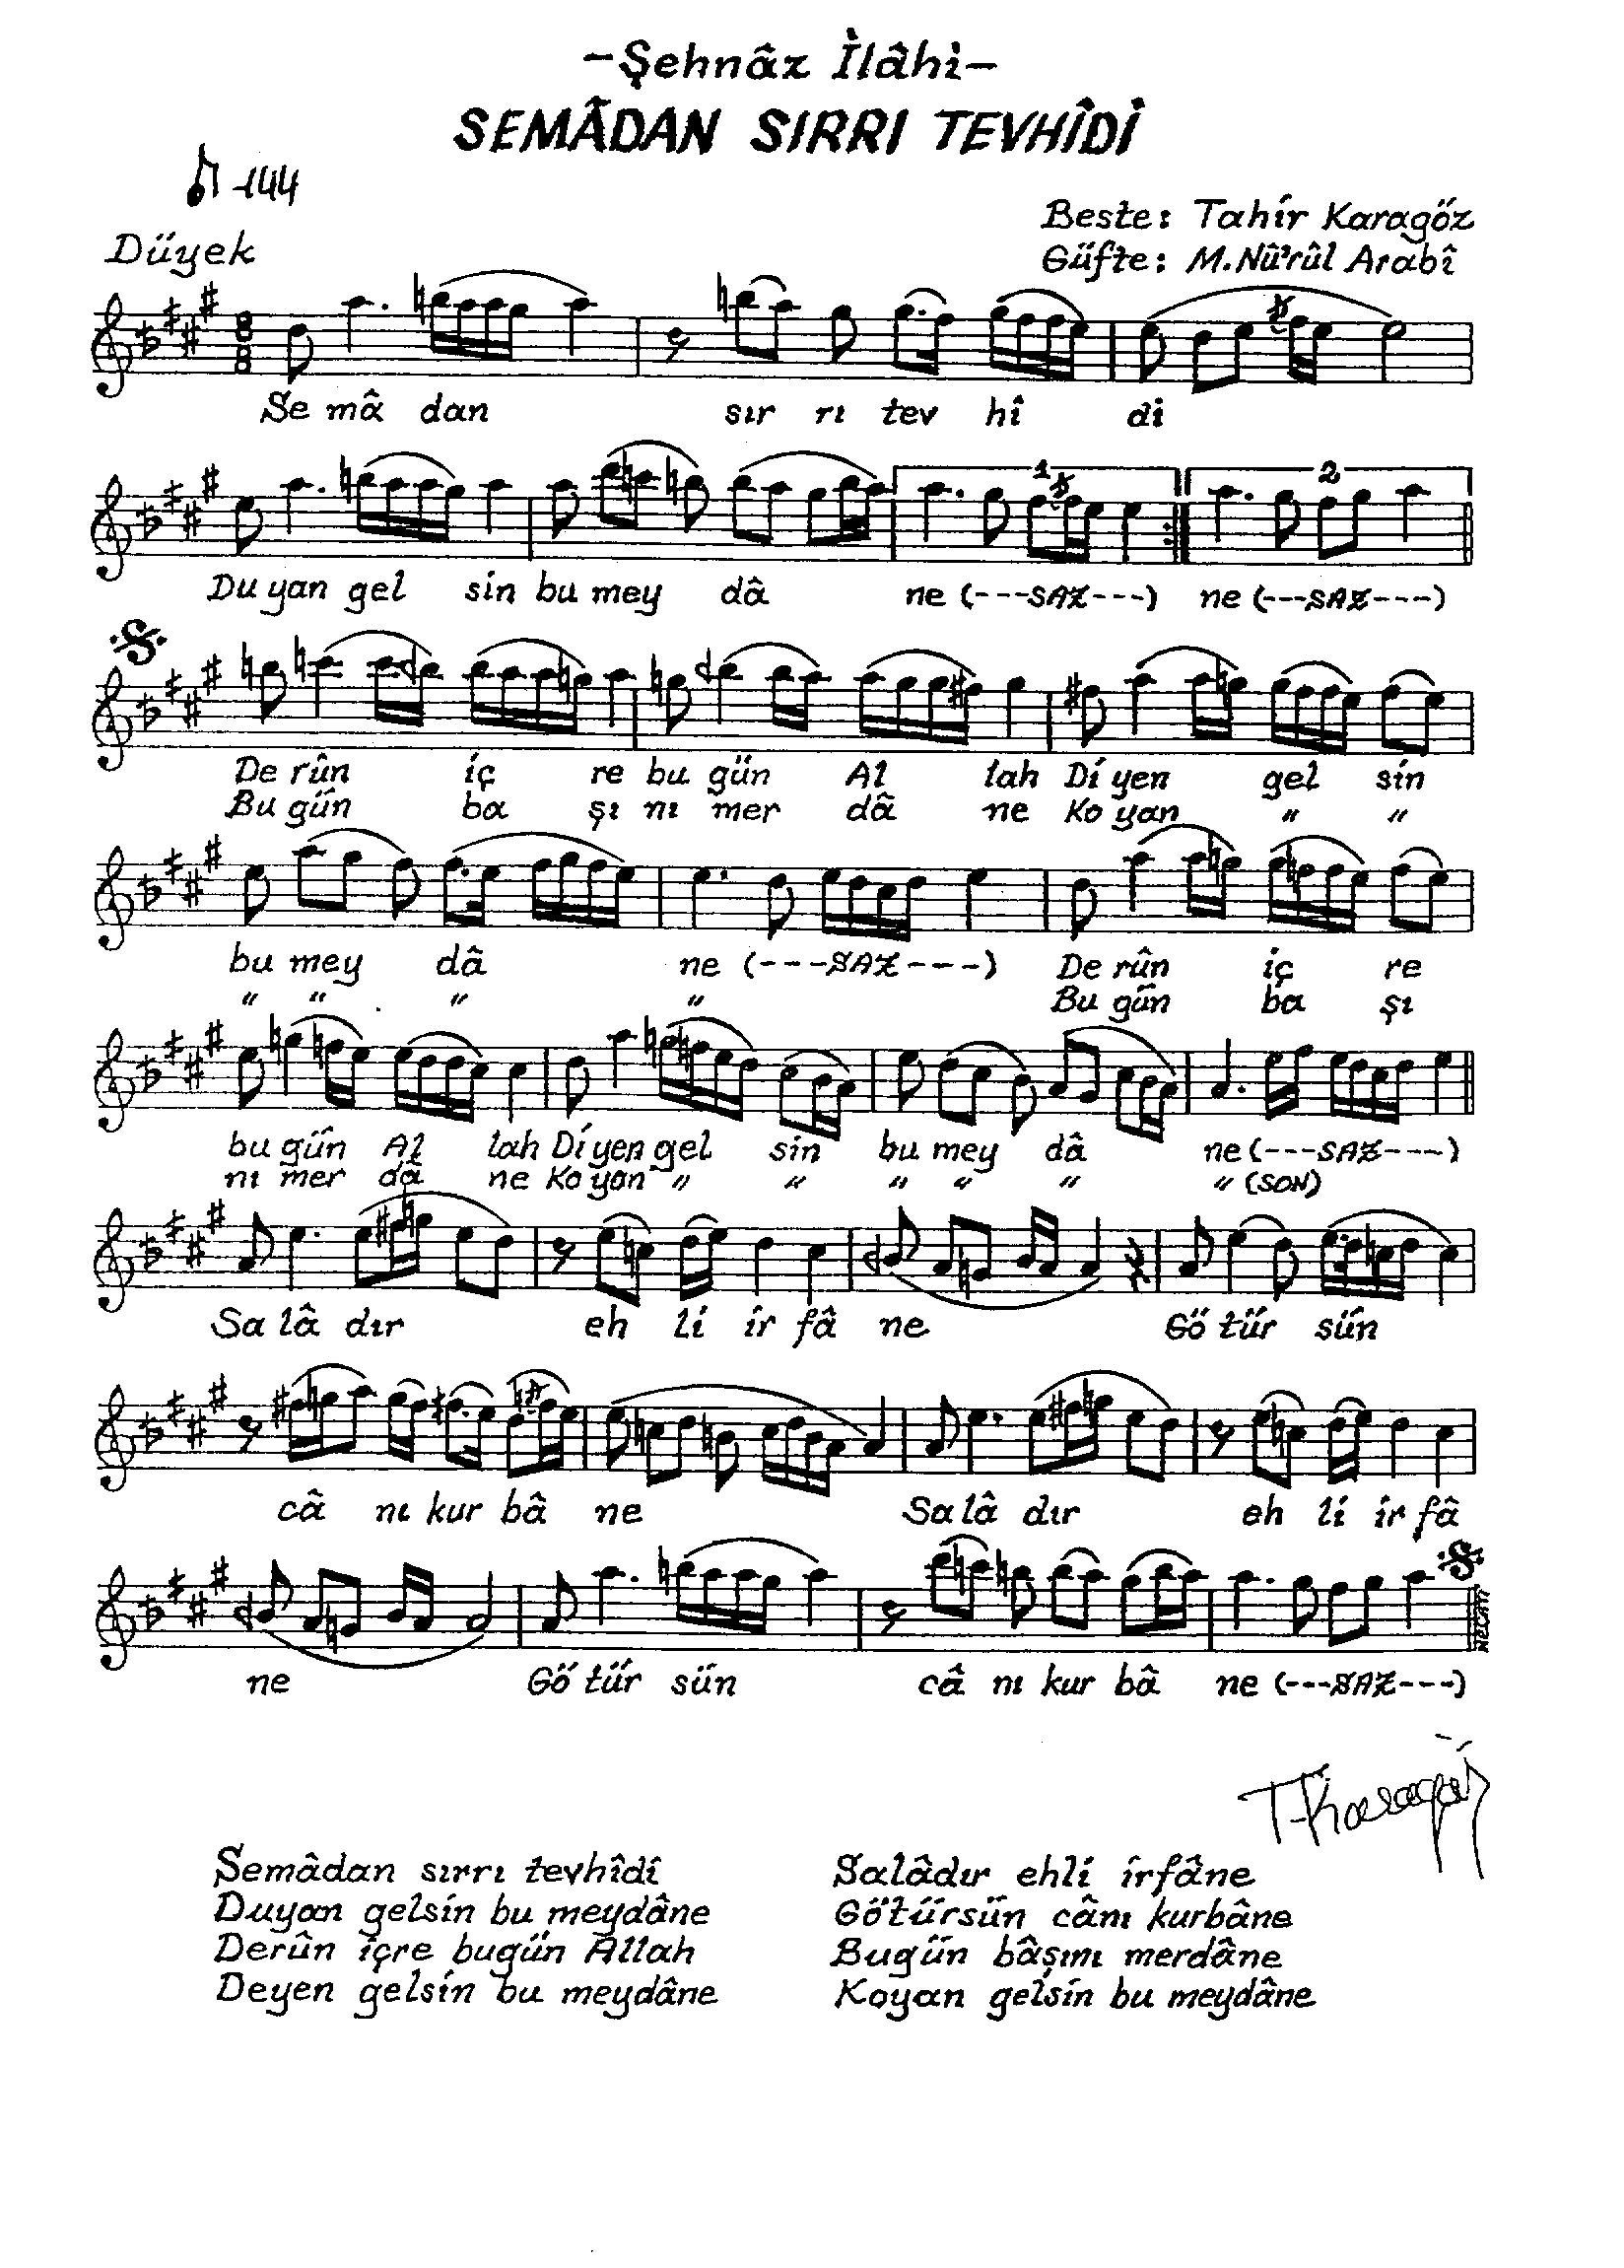 -Şehnâz İlâhi-
SEMÂDAN SIRRI TEVHÎDİ
♪-144
Beste: Tahir Karagöz
Düyek
Güfte: M.Nû'rûl Arabî
8
8
Se mâ dan sır rı tev hî di
1 2
Du yan gel sin bu mey dâ ne (---SAZ---) ne (---SAZ---)
De rûn iç re bu gün Al lah Di yen gel sin
Bu gün ba şı nı mer dâ ne Ko yan " "
bu mey dâ ne (---SAZ---) De rûn iç re
" " " " Bu gün ba şı
bu gün Al lah Di yen gel sin bu mey dâ ne (---SAZ---)
nı mer dâ ne Ko yan " " " " " " (SON)
Sa lâ dır eh li ir fâ ne Gö tür sün
câ nı kur bâ ne Sa lâ dır eh li ir fâ
ne Gö tür sün câ nı kur bâ ne (---SAZ---)
NECATİ
T-Karagöz
Semâdan sırrı tevhîdi
Duyan gelsin bu meydâne
Derûn içre bugün Allah
Deyen gelsin bu meydâne
Salâdır ehli irfâne
Götürsün cânı kurbâne
Bugün bâşını merdâne
Koyan gelsin bu meydâne